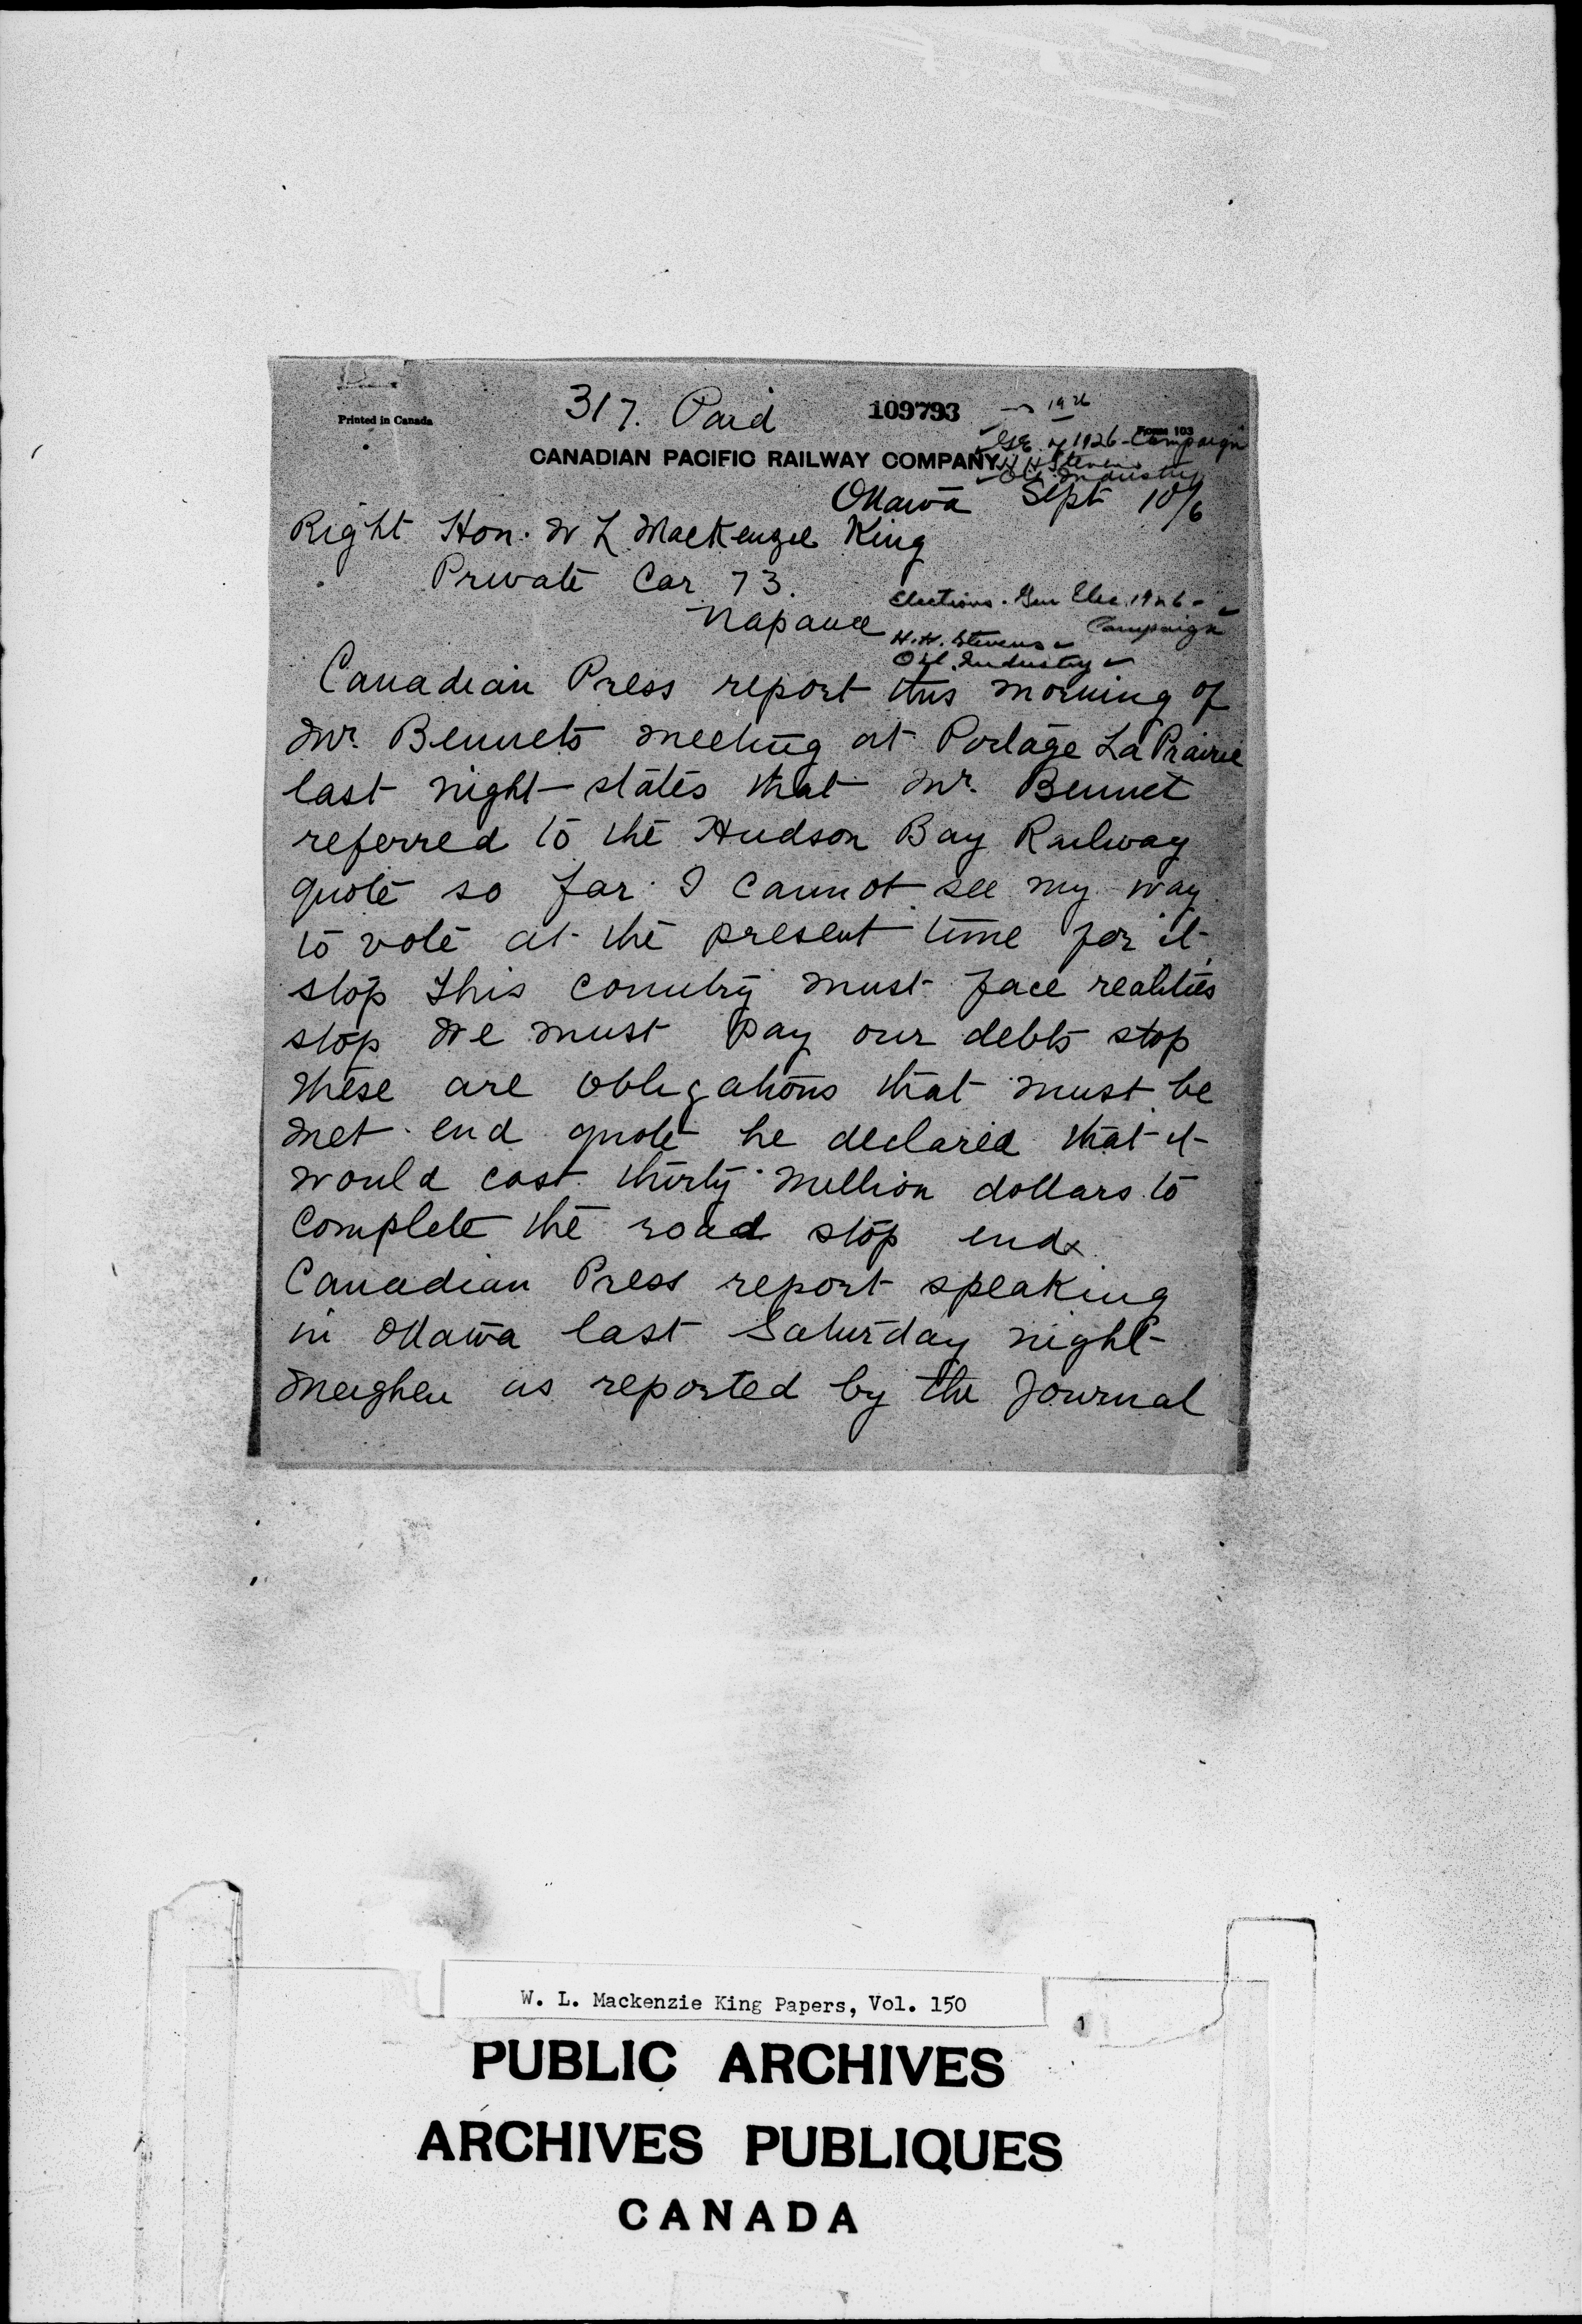 317. Paid
109793
1926
Printed in Canada
Form 103
G.E. of 1926 - Campaign
CANADIAN PACIFIC RAILWAY COMPANY
H H Stevens
Oil Industry
Ottawa Sept 10/6
Right Hon. W L MacKenzie King
Private Car 73.
Napanee
Elections. Gen Elec. 1926 -
Campaign
H. H. Stevens
Oil. Industry
Canadian Press report this morning of
Mr. Bennets meeting at Portage La Prairie
last night states that Mr. Bennet
referred to the Hudson Bay Railway
quote so far I cannot see my way
to vote at the present time for it
stop this country must face realities
stop We must pay our debts stop
these are obligations that must be
met end quote he declared that it
would cost thirty million dollars to
complete the road stop end
Canadian Press report speaking
in Ottawa last Saturday night
Meighen as reported by the Journal
W. L. Mackenzie King Papers, Vol. 150
1
PUBLIC ARCHIVES
ARCHIVES PUBLIQUES
CANADA